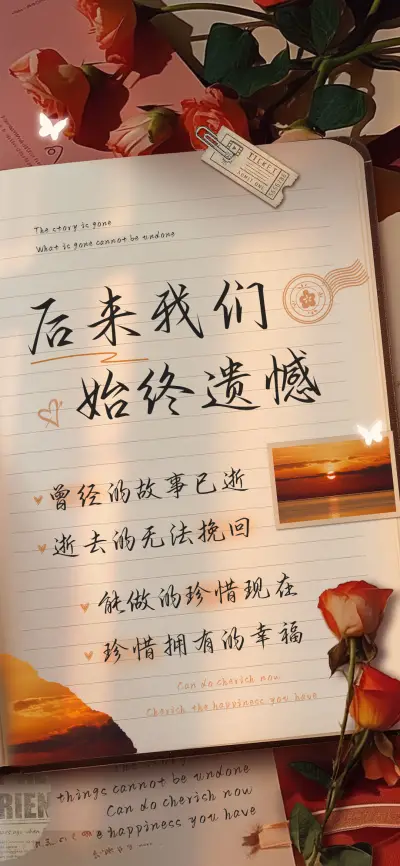 TICKET
ADMIT ONE
The story is gone
What is gone cannot be undone
后来我们
始终遗憾
曾经的故事已逝
逝去的无法挽回
能做的珍惜现在
珍惜拥有的幸福
Can do cherish now
Cherish the happiness you have
things cannot be undone
Can do cherish now
e happiness you have
RIEN